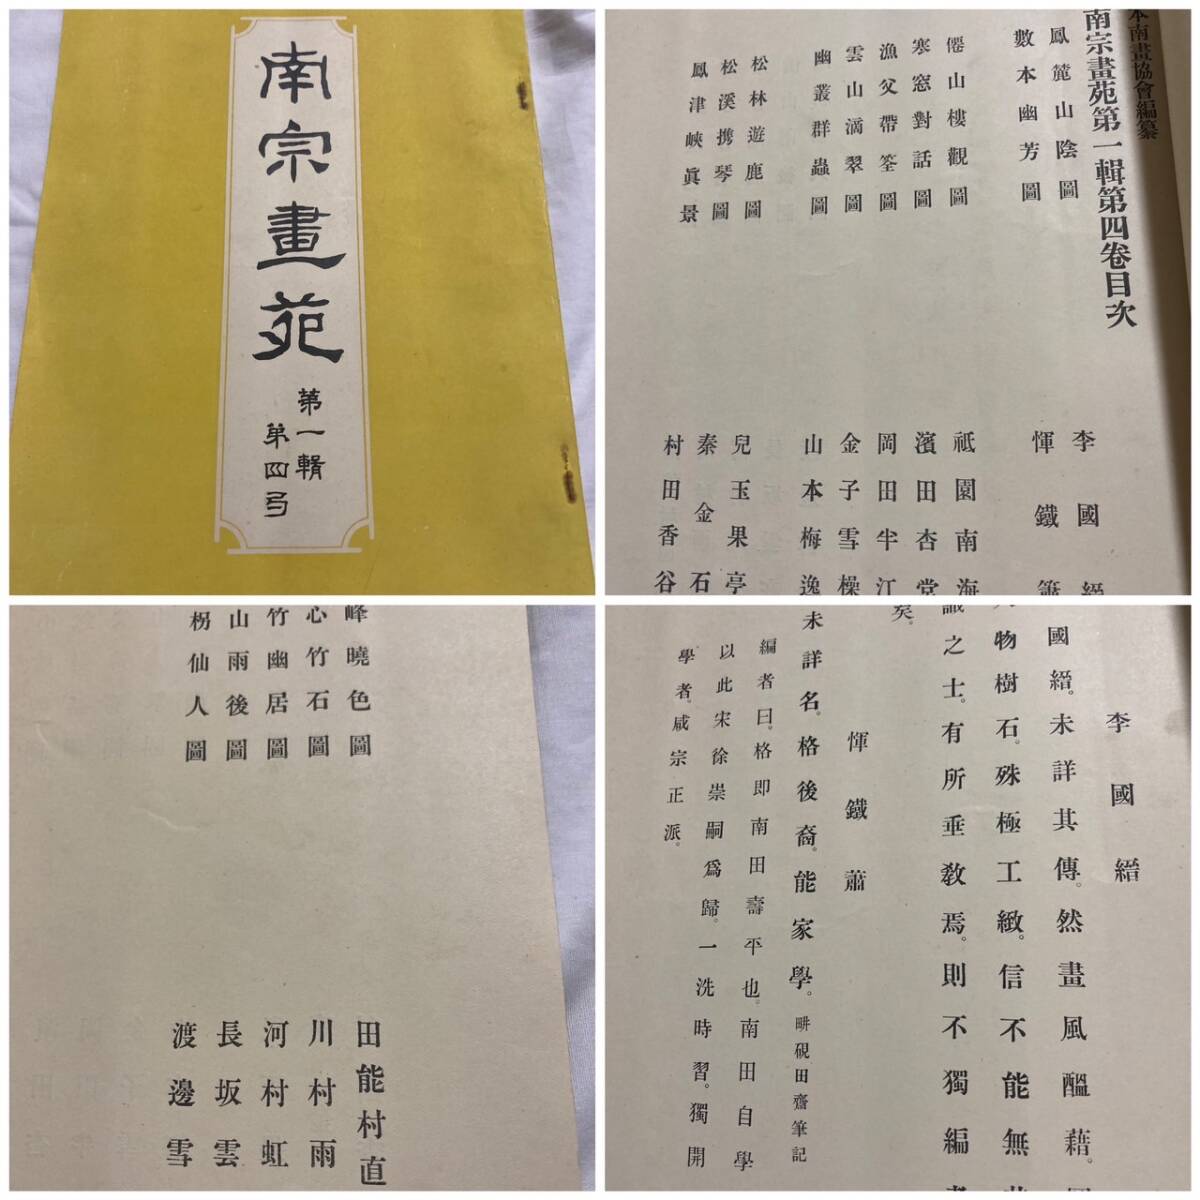 南宗畫苑
第一輯
第四弓
本南畫協會編纂
南宗畫苑第一輯第四卷目次
鳳麓山陰圖
李國縉
數本幽芳圖
惲鐵簫
僊山樓觀圖
祗園南海
寒窓對話圖
濱田杏堂
漁父帶筌圖
岡田半江
雲山滴翠圖
金子雪操
幽叢群蟲圖
山本梅逸
松林遊鹿圖
兒玉果亭
松溪携琴圖
秦金石
鳳津峽眞景
村田香谷
峰曉色圖
田能村直
心竹石圖
川村雨
竹幽居圖
河村虹
山雨後圖
長坂雲
柺仙人圖
渡邊雪
李國縉
國縉。未詳其傳。然畫風醞藉。
物樹石。殊極工緻。信不能無
識之士。有所垂敎焉。則不獨編
矣。
惲鐵簫
未詳名。格後裔。能家學。畊硯田齋筆記
編者曰。格卽南田壽平也。南田自學
以此宋徐崇嗣爲歸。一洗時習。獨開
學者。咸宗正派。